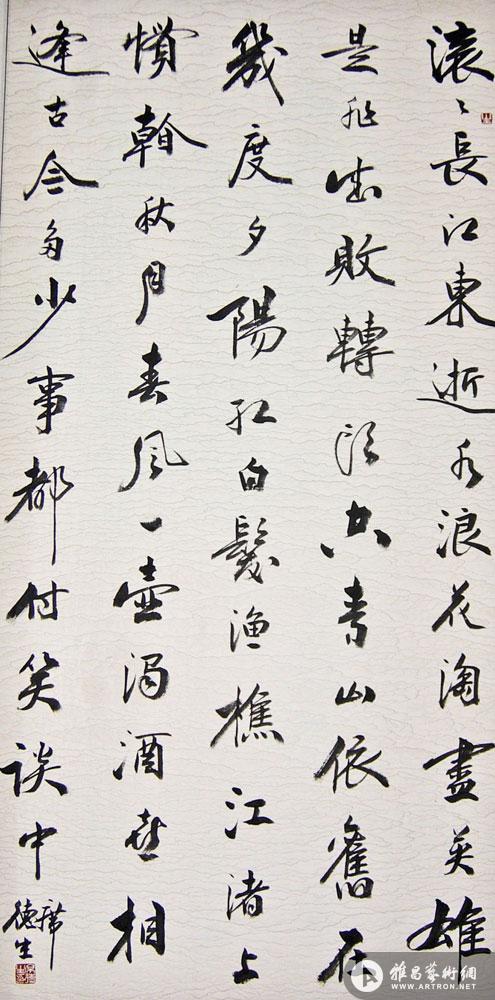 滚々長江東逝水浪花淘盡英雄
是非成敗轉頭空青山依舊在
幾度夕陽紅白髮渔樵江渚上
慣看秋月春風一壺濁酒喜相
逢古今多少事都付笑談中
席德生
雅昌藝術網
WWW.ARTRON.NET